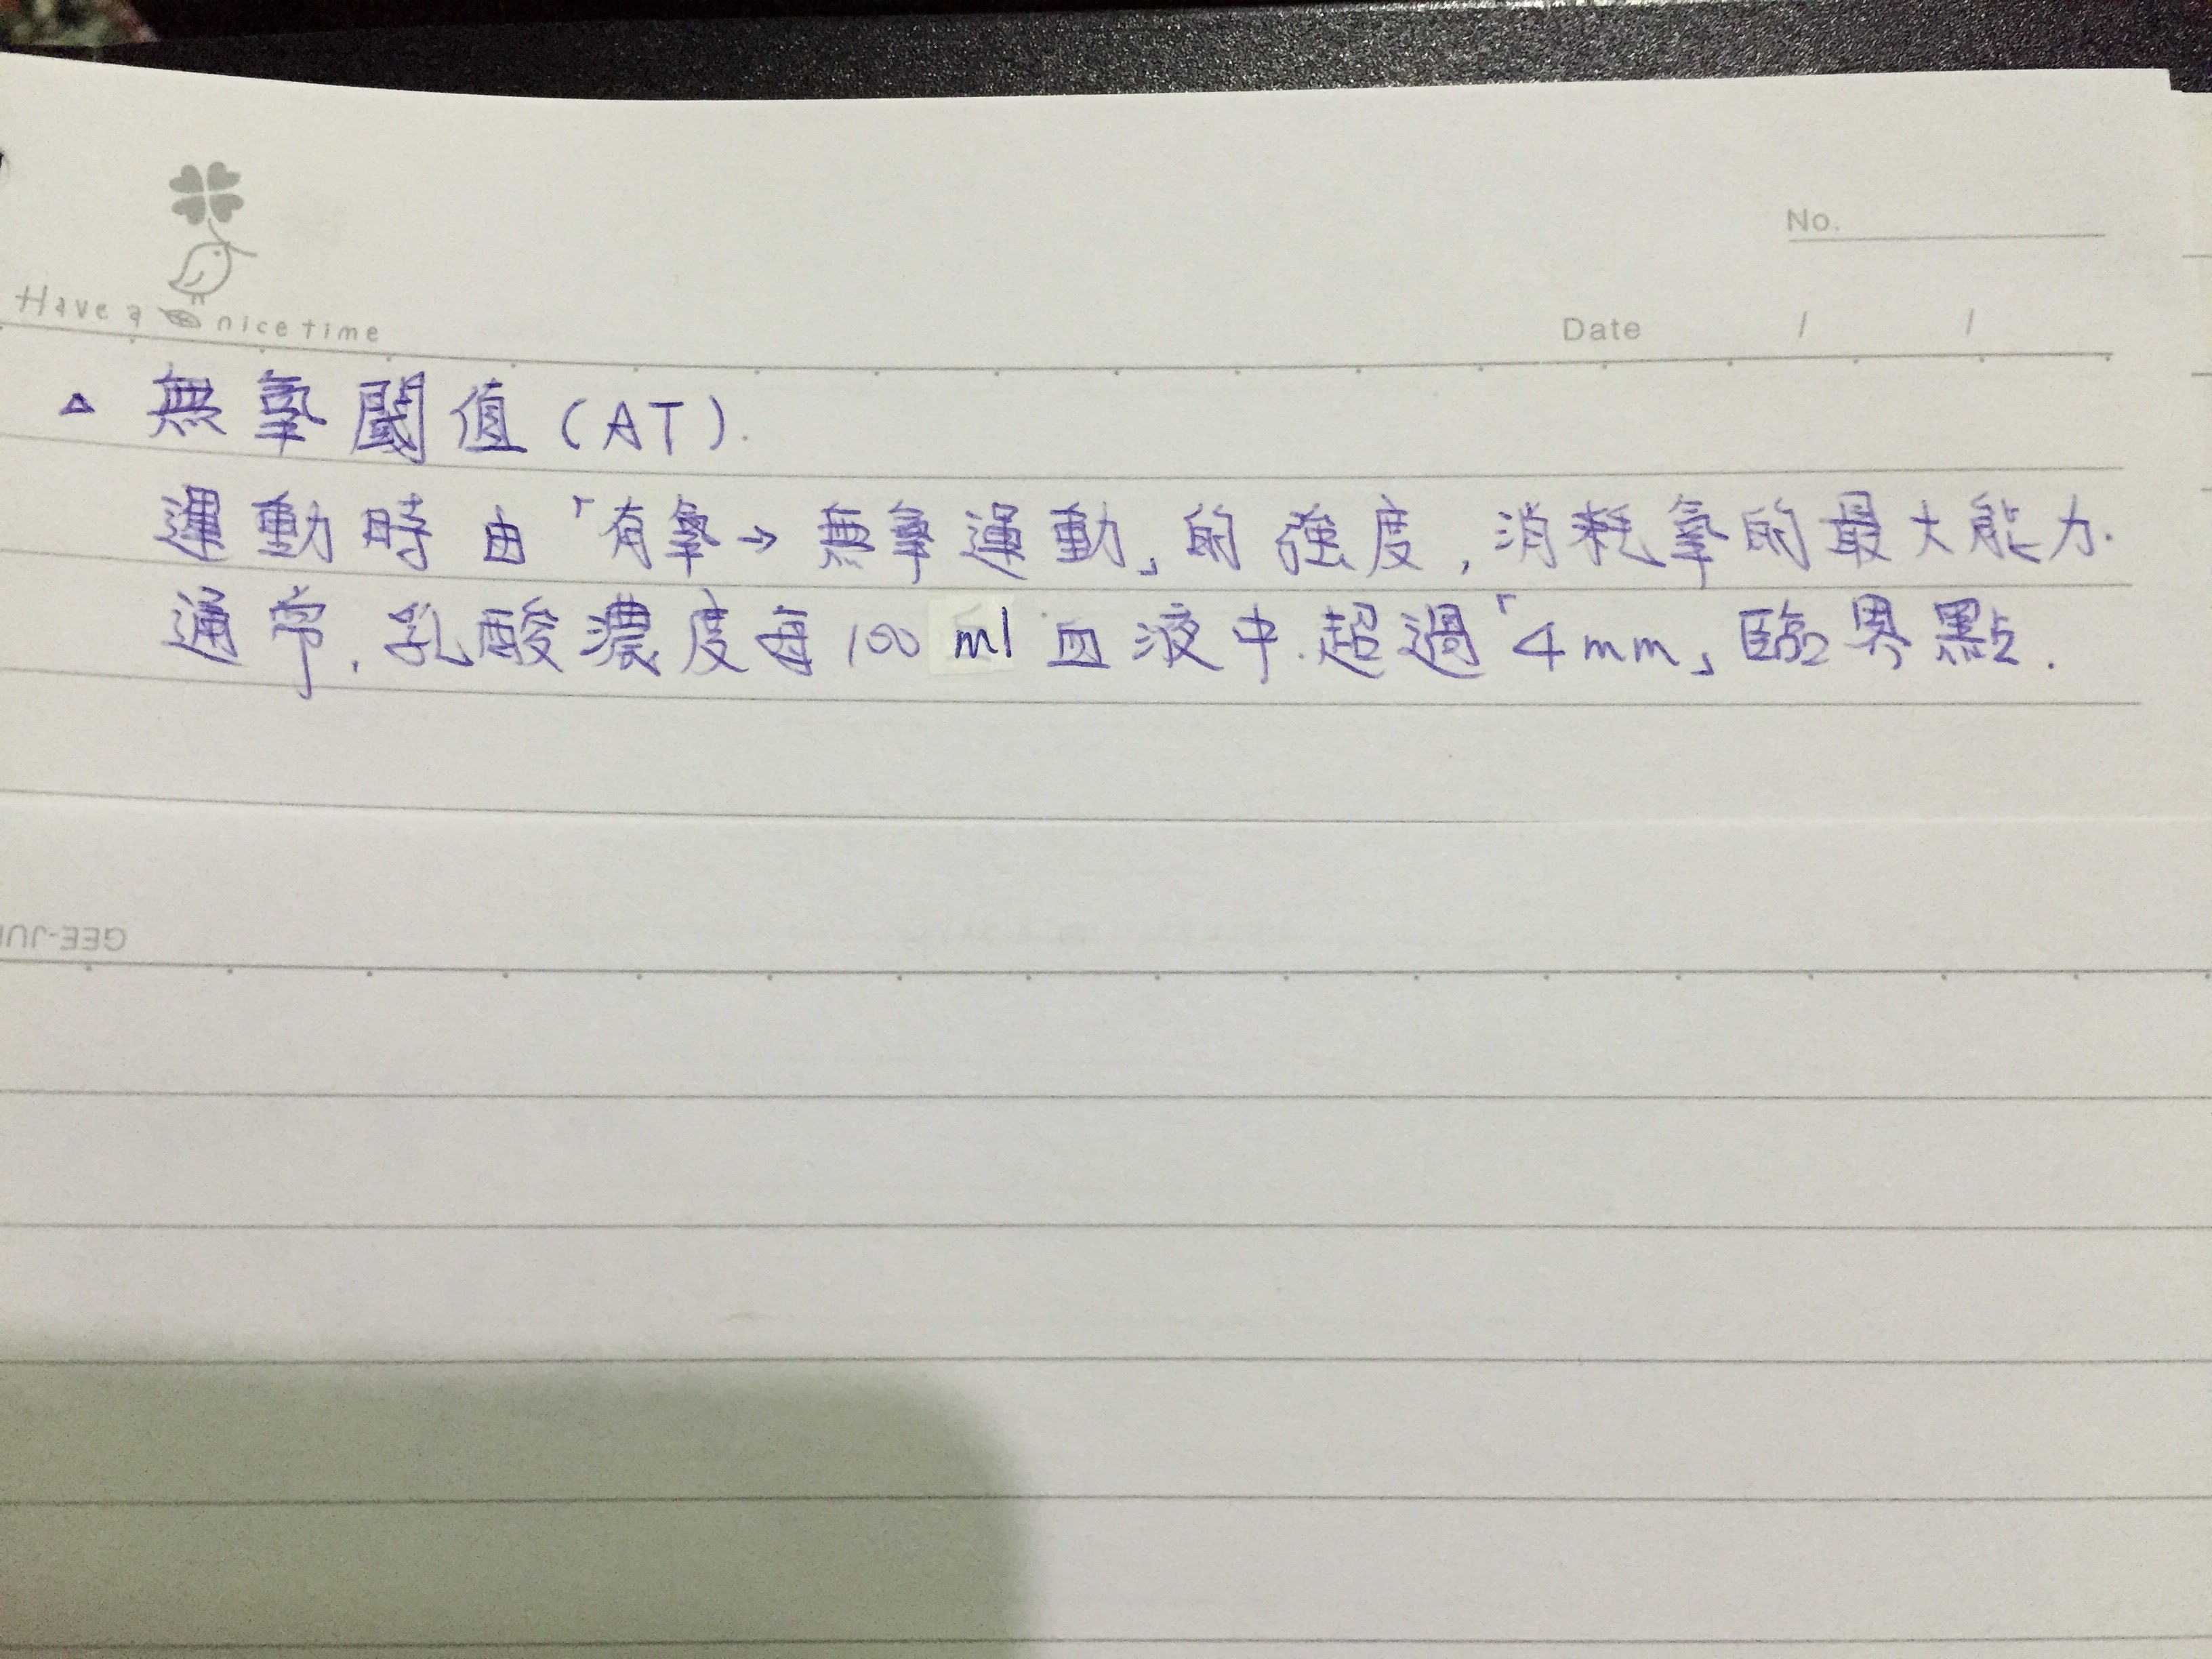 No.
Have a nice time
Date / /
△ 無氧閾值(AT).
運動時由「有氧→無氧運動」的強度,消耗氧的最大能力.
通常,乳酸濃度每100 ml 血液中.超過「4mm」臨界點.
GEE-JU